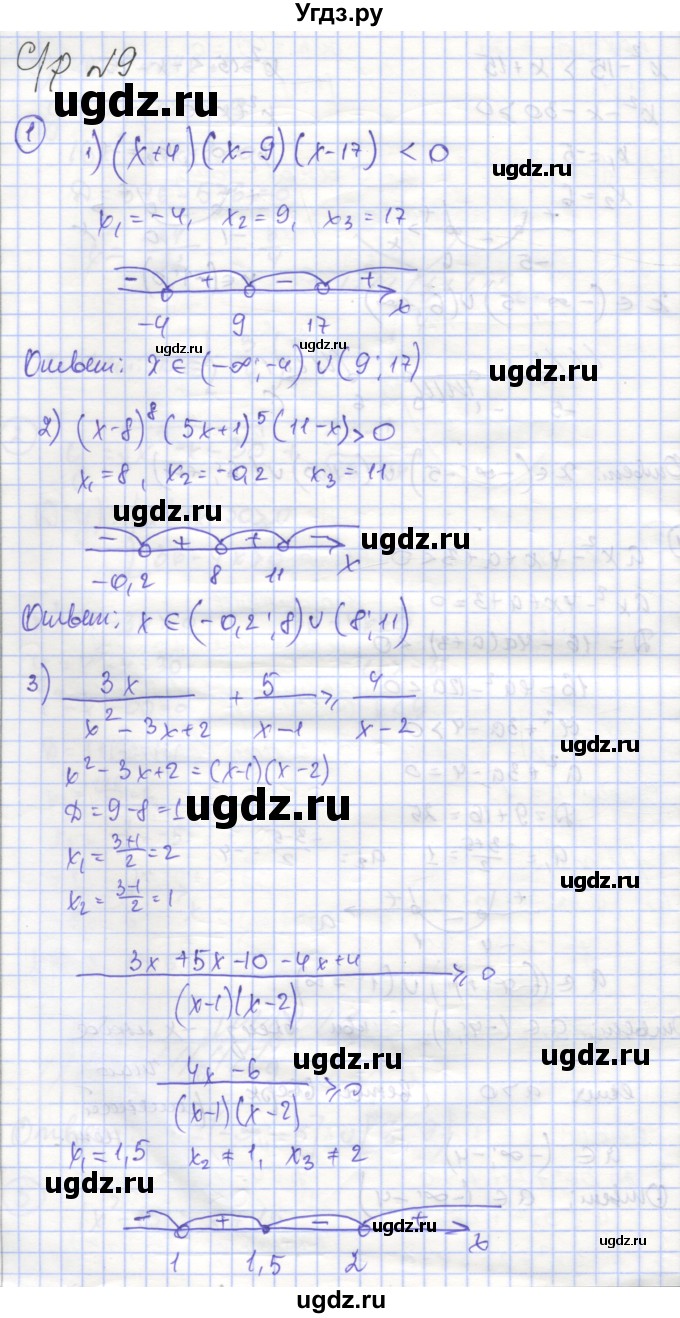 Угдз.ру
С/р №9
ugdz.ru
1
1) (x+4)(x-9)(x-17) < 0
ugdz.ru
x₁ = -4, x₂ = 9, x₃ = 17
- + - + x
-4 9 17
ugdz.ru ugdz.ru
Ответ: x ∈ (-∞; -4) ∪ (9; 17)
ugdz.ru
2) (x-8)⁸ (5x+1)⁵ (11-x) > 0
x₁ = 8, x₂ = -0,2 x₃ = 11
ugdz.ru
ugdz.ru
- + + - x
-0,2 8 11
Ответ: x ∈ (-0,2; 8) ∪ (8; 11)
ugdz.ru
3) 3x/(x² - 3x + 2) + 5/(x-1) ≥ 4/(x-2)
ugdz.ru
x² - 3x + 2 = (x-1)(x-2)
D = 9 - 8 = 1
ugdz.ru
x₁ = (3+1)/2 = 2
ugdz.ru
x₂ = (3-1)/2 = 1
(3x + 5x - 10 - 4x + 4)/((x-1)(x-2)) ≥ 0
ugdz.ru
ugdz.ru
(4x - 6)/((x-1)(x-2)) ≥ 0
x₁ = 1,5 x₂ ≠ 1, x₃ ≠ 2
ugdz.ru
- + - + x
ugdz.ru
ugdz.ru
1 1,5 2
ugdz.ru